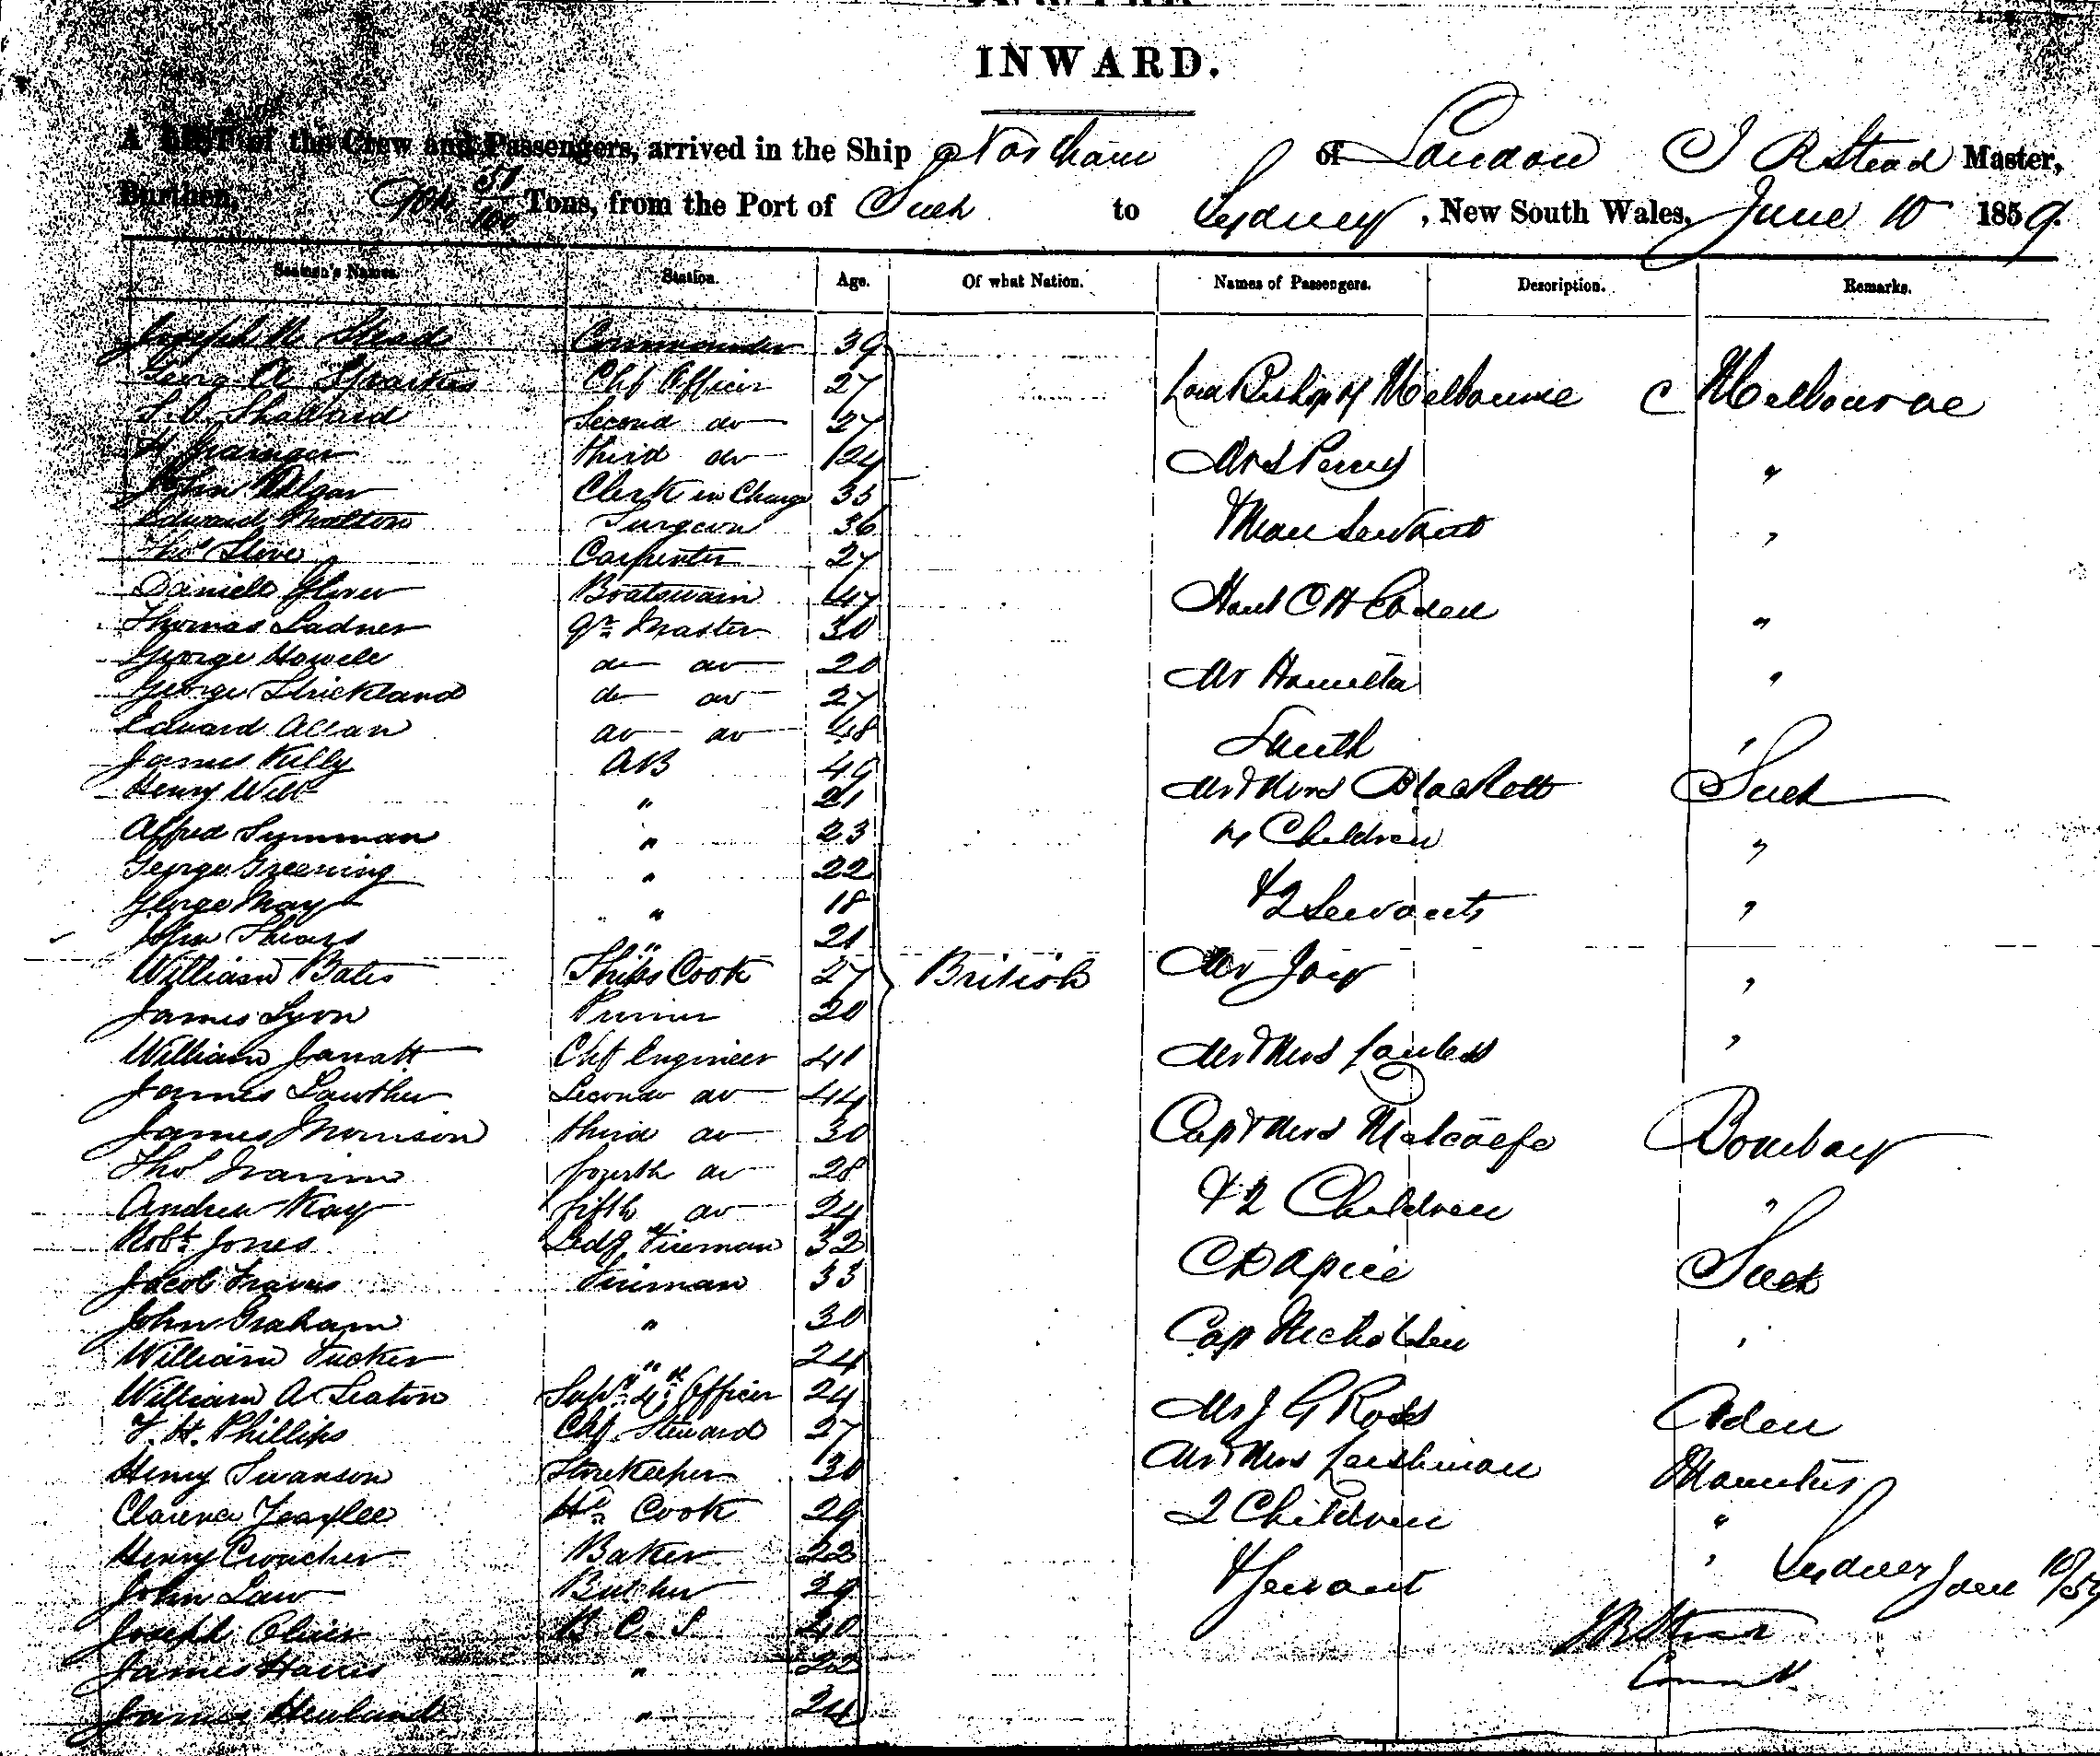 INWARD.
A LIST of the Crew and Passengers, arrived in the Ship Norham of London J R Stead Master,
Burthen, 51/100 Tons, from the Port of Suez to Sydney, New South Wales, June 10 1859.
Seamen's Names. Station. Age. Of what Nation. Names of Passengers. Description. Remarks.
Joseph R Stead Commander 39
Georg A Sparkes Chf Officer 27 Lord Bishop of Melbourne Melbourne
Shallard Second do 27
H Grainger third do 24 Mrs Perry "
John Alger Clerk in Charge 35
Edward Malton Surgeon 36 & Man Servant "
Thos Carpenter 27
Daniell Glover Boatswain 47 Honl "
Thomas Ladner Qr Master 30
George Howell do do 20 Mr Hamilton "
George Strickland do do 27
Edward Allan do do 48 Smith "
James Kelly AB 49 Mr & Mrs Blackett Suez
Henry Will " 21
Alfred Summan " 23 4 Children "
George Greening " 22
George May " 18 & 2 Servants "
John " 21
William Bates Ships Cook 27 British Mr Joy "
James Lyon 20
William Jarratt Chf Engineer 41 Mr & Mrs "
James Lawther Second do 44
James Morrison third do 30 Capt & Mrs Metcalfe Bombay
Thos fourth do 28
Andrew Kay fifth do 24 & 2 Children "
Robt Jones Ledg Fireman 32
Jacob Fireman 33 Suez
John Graham " 30 Cap Nicholson "
William Tucker " 24
William A Seaton Supy 4th Officer 24 Mr J G Ross Aden
Phillips Chf Steward 27
Henry Swanson Storekeeper 30 Mr & Mrs Leishman Mauritius
Clarence Cook 29 2 Children "
Henry Croucher Baker 22 & Servant "
Sydney June 10/59
John Law Butcher 29
Joseph Clair B. C. S. 40 J R Stead
James Harris " 22 Comm
James " 24